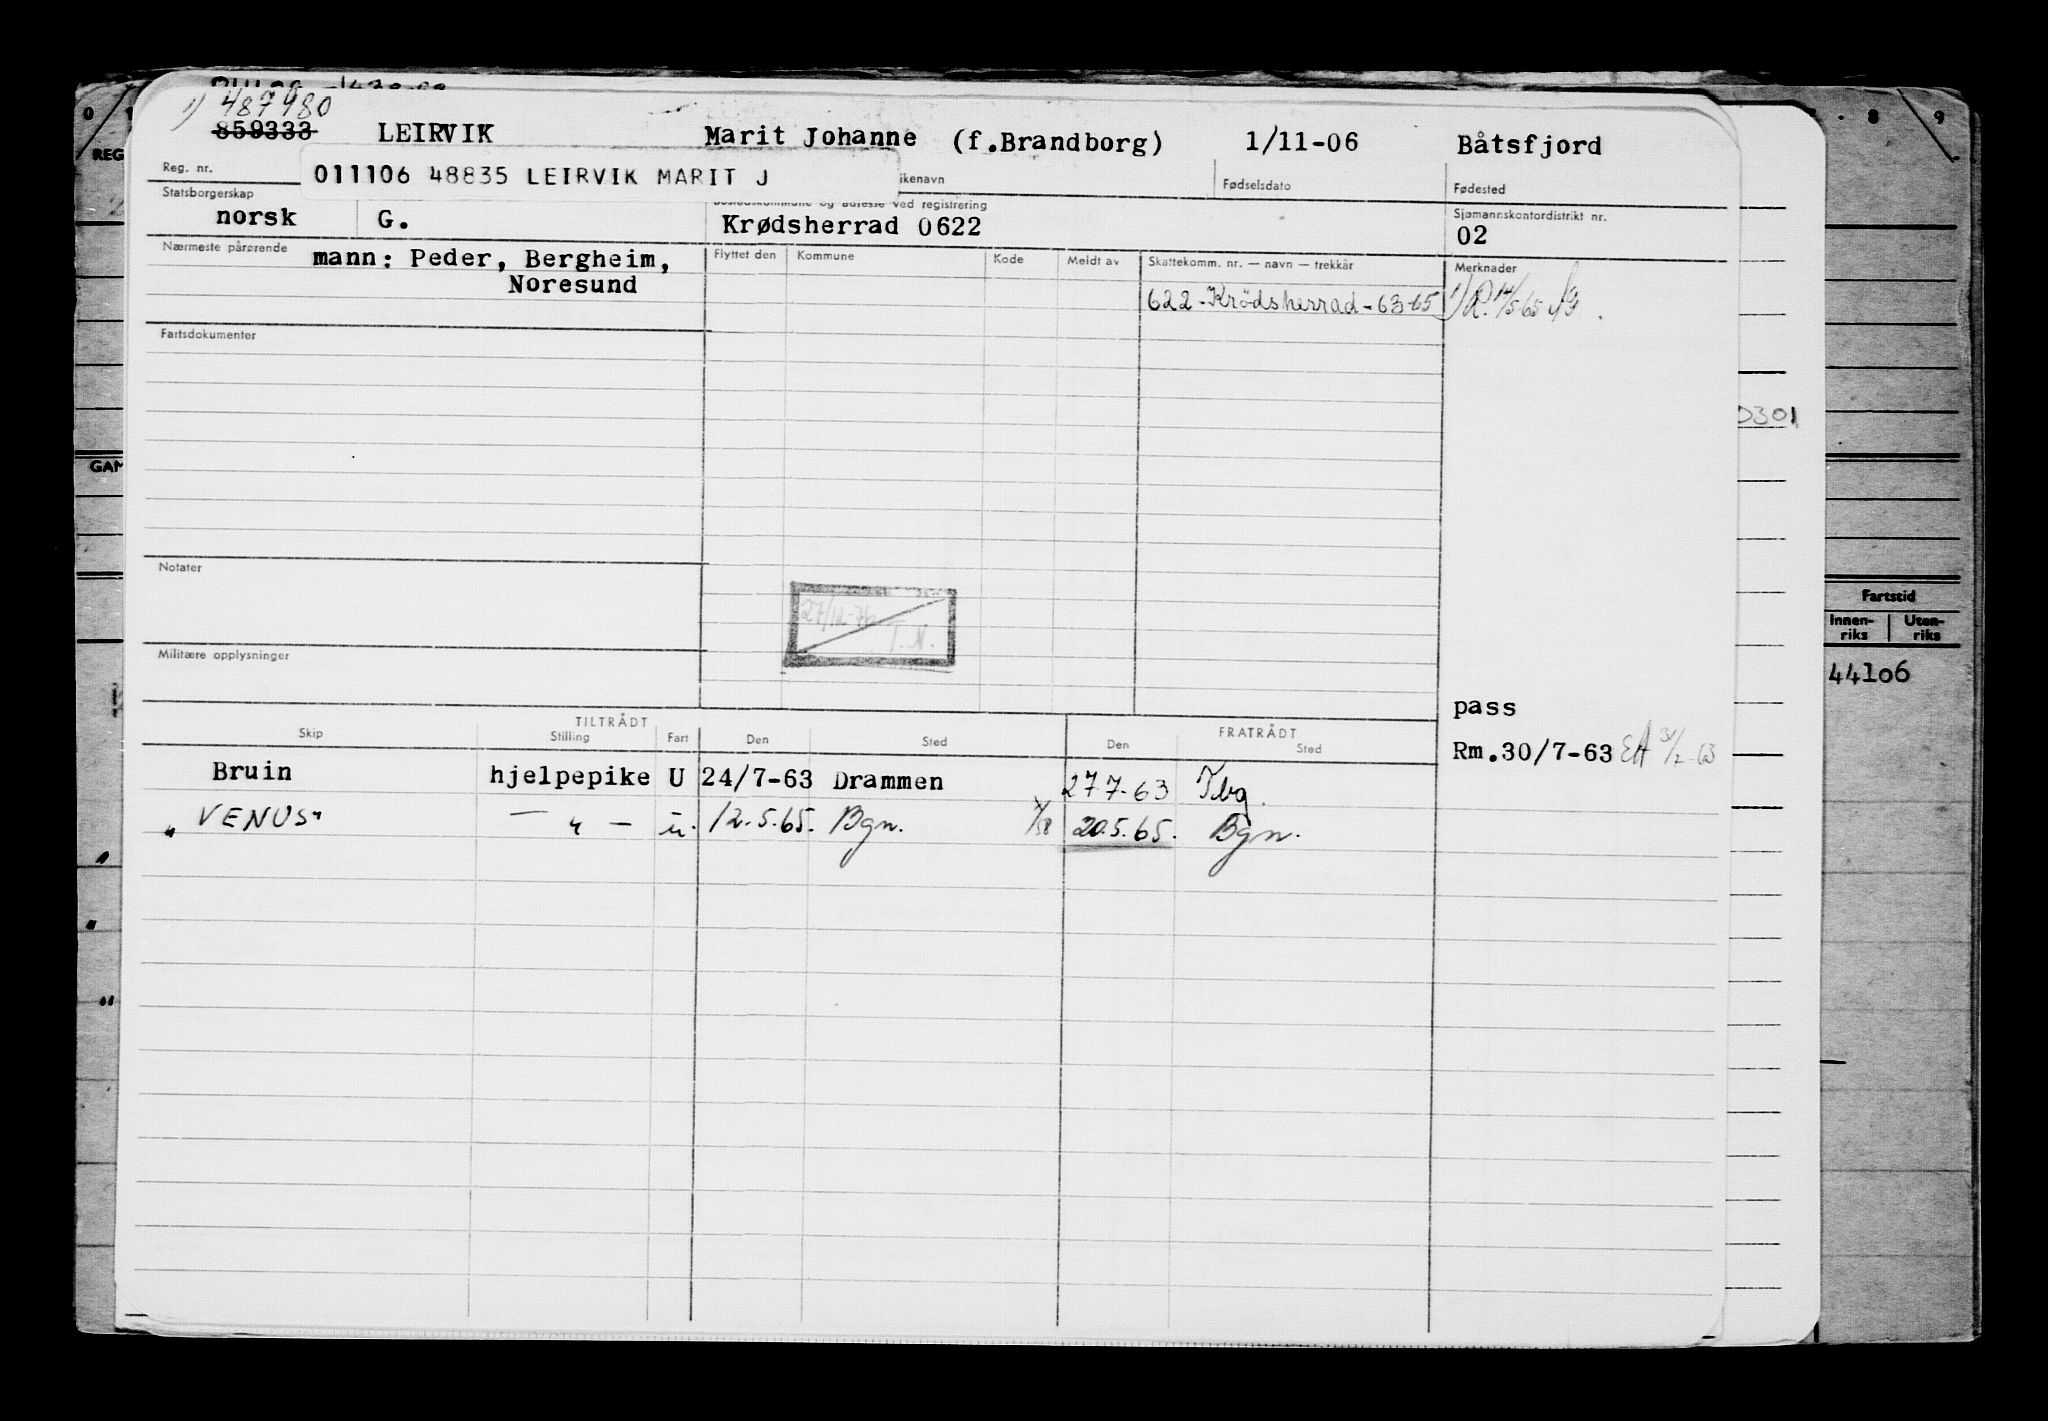 1) 487480
859333 LEIRVIK Marit Johanne (f.Brandborg) 1/11-06 Båtsfjord
Reg. nr. 011106 48835 LEIRVIK MARIT J ikenavn Fødselsdato Fødested
Statsborgerskap ved registrering Sjømannskontordistrikt nr.
norsk G. Krødsherrad 0622 02
Nærmeste pårørende mann: Peder, Bergheim, Flyttet den Kommune Kode Meldt av Skattekomm. nr. — navn — trekkår Merknader
Noresund 622-Krödsherrad-63-65
Fartsdokumenter
0301
Notater
27/12-76
T.N.
Militære opplysninger
pass
TILTRÅDT FRATRÅDT
Skip Stilling Fart Den Sted Den Sted
Rm.30/7-63
Bruin hjelpepike U 24/7-63 Drammen 27 7-63 Tbg.
"VENUS" — " — u. 12.5.65. Bgn. 20.5.65. Bgn.
0 8 9
REG
GAM
Fartstid
Innen-riks Uten-riks
44106